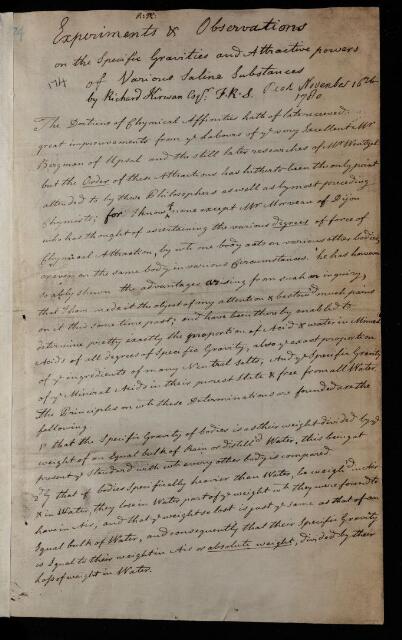 R.R.
Experiments & Observations
on the Specific Gravities and Attractive powers
174
of Various Saline Substances
by Richard Kirwan Esqr. F.R.S. Read November 16th
1780
The Doctrine of Chymical Affinities hath of late received
great improvements from ye Labours of ye very Excellent Mr
Bergman of Upsal and the still later researches of Mr Wentzel
but the Order of these Attractions has hitherto been the only point
attended to by these Philosophers as well as by most preceding
Chymists; for I know of none except Mr Morveau of Dijon
who has thought of ascertaining the various degrees of force of
Chymical Attraction, by wch one body acts on various other bodies
or even on the same body in various Circumstances. he has however
so ably shewn the advantages arising from such an inquiry,
that I have made it the object of my attention & bestow'd much pains
on it this some time past; and have been thereby enabled to
determine pretty exactly the proportion of Acid & water in Mineral
Acids of all degrees of Specific Gravity, also ye exact proportion
of ye ingredients of many Neutral Salts, And ye Specific Gravity
of ye Mineral Acids in their purest State & free from all Water.
The Principles on wch these Determinations are founded are the
following
1st that the Specific Gravity of bodies is as their weight divided by ye
weight of an Equal bulk of Rain or distill'd Water, this being at
present ye Standard with wch every other body is compared
2dly that if bodies Specifically heavier than Water, be weigh'd in Air
& in Water, they lose in Water part of ye weight wch they were found to
have in Air, and that ye weight so lost is just ye same as that of an
Equal bulk of Water, and consequently that their Specific Gravity
is Equal to their weight in Air or absolute weight, divided by their
loss of weight in Water.